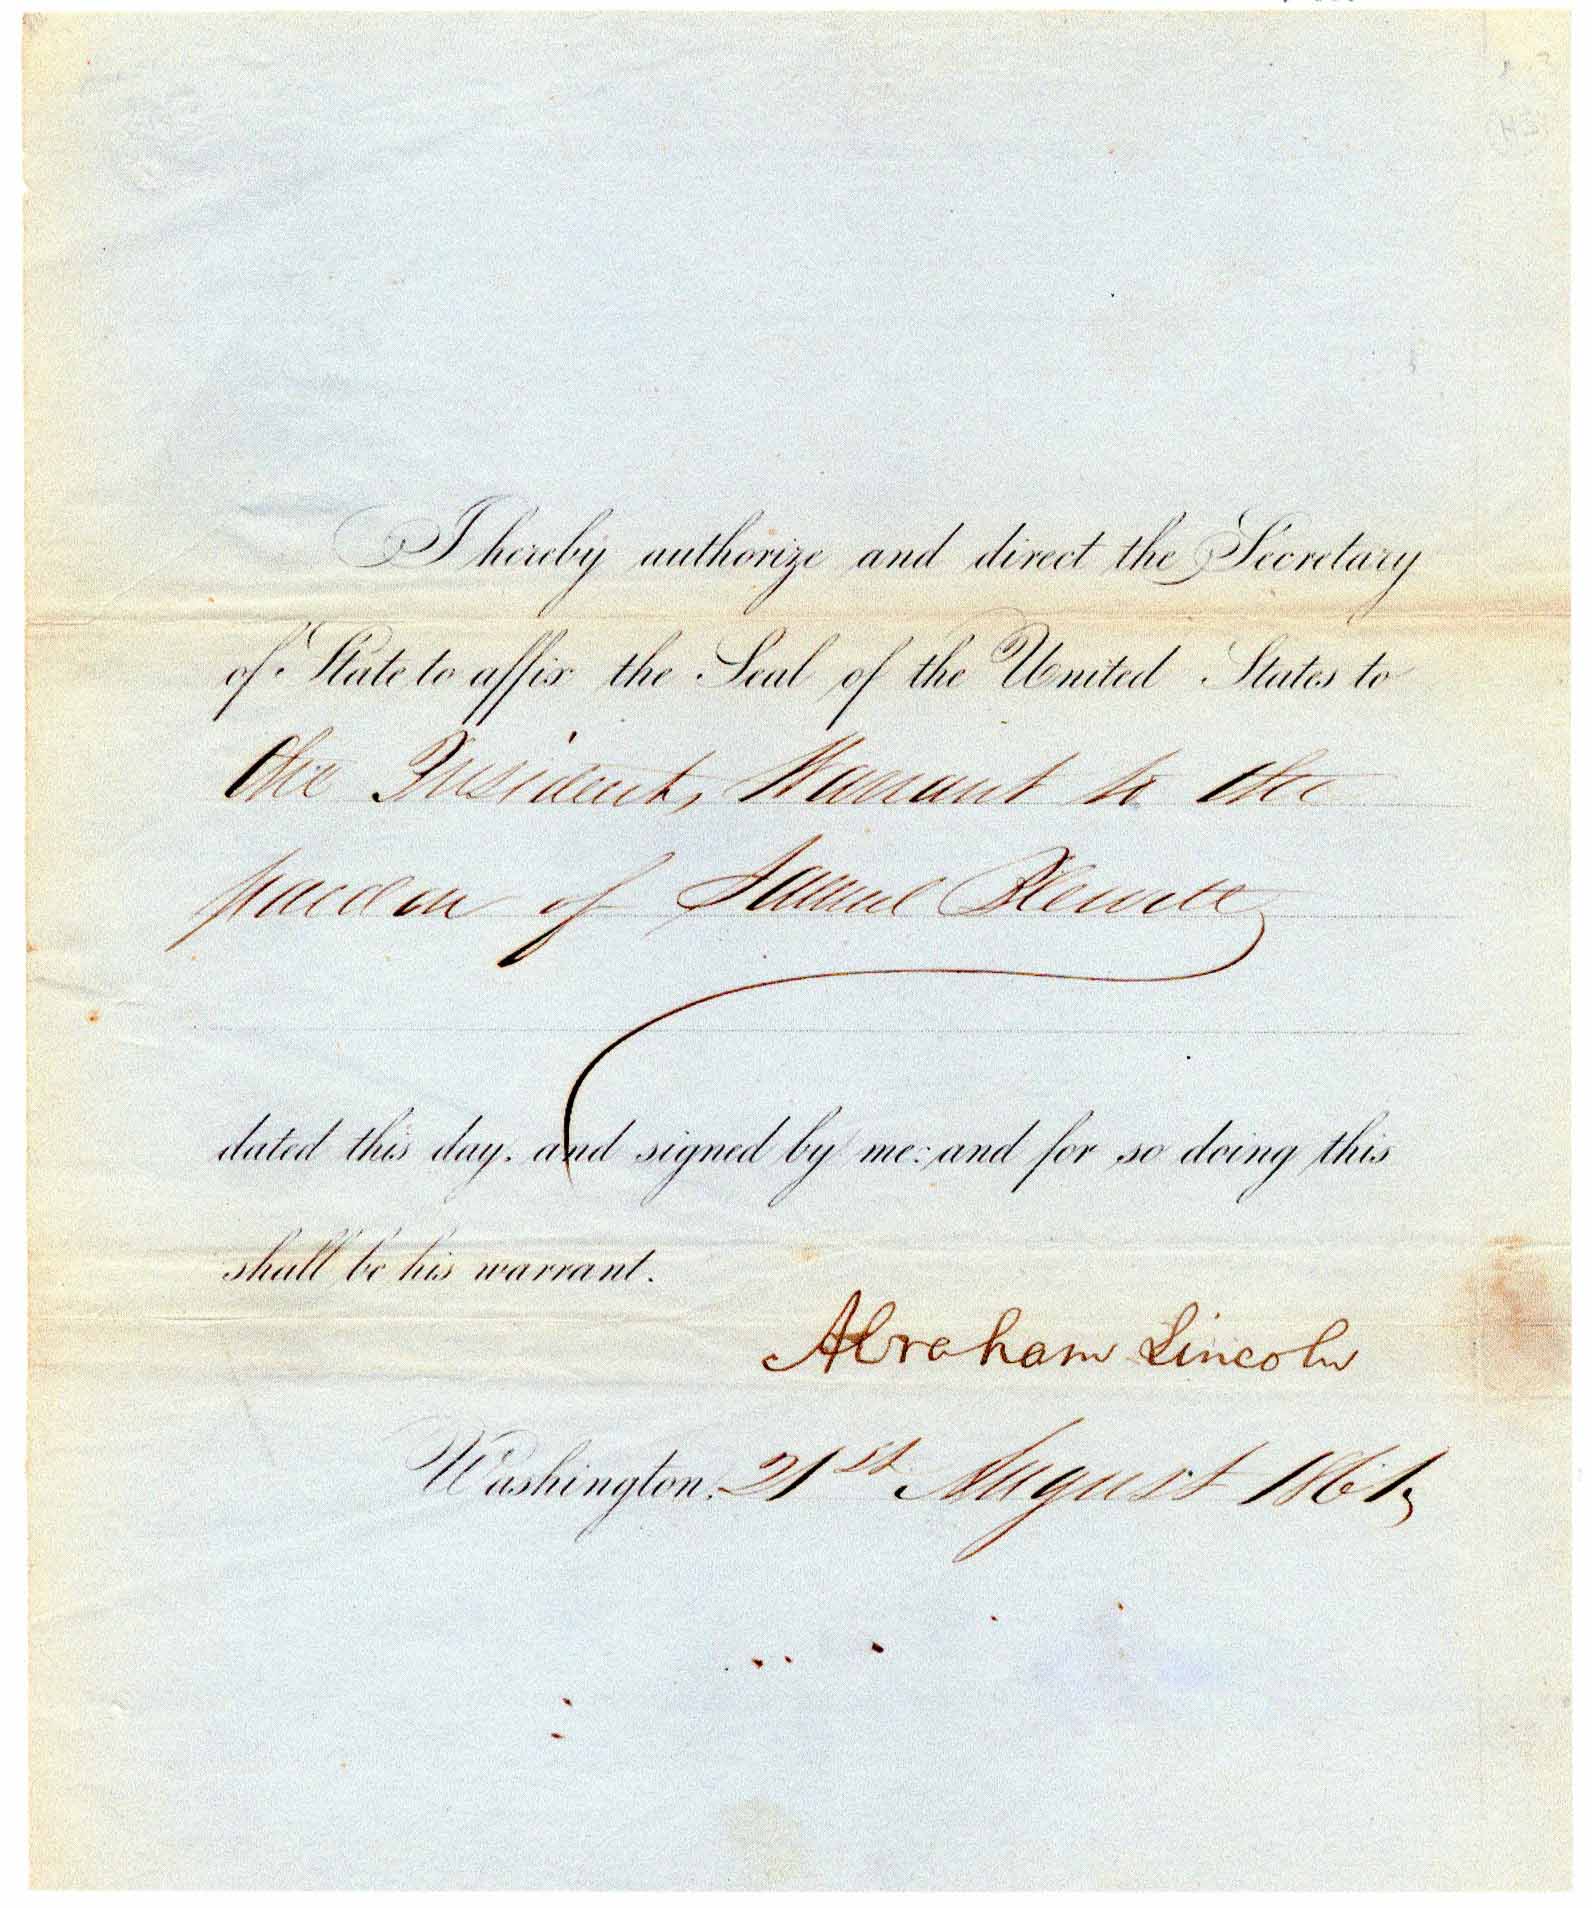 I hereby authorize and direct the Secretary
of State to affix the Seal of the United States to
the President's Warrant to the
pardon of Samuel Blewett
dated this day, and signed by me: and for so doing this
shall be his warrant.
Abraham Lincoln
Washington, 21st August 1861,